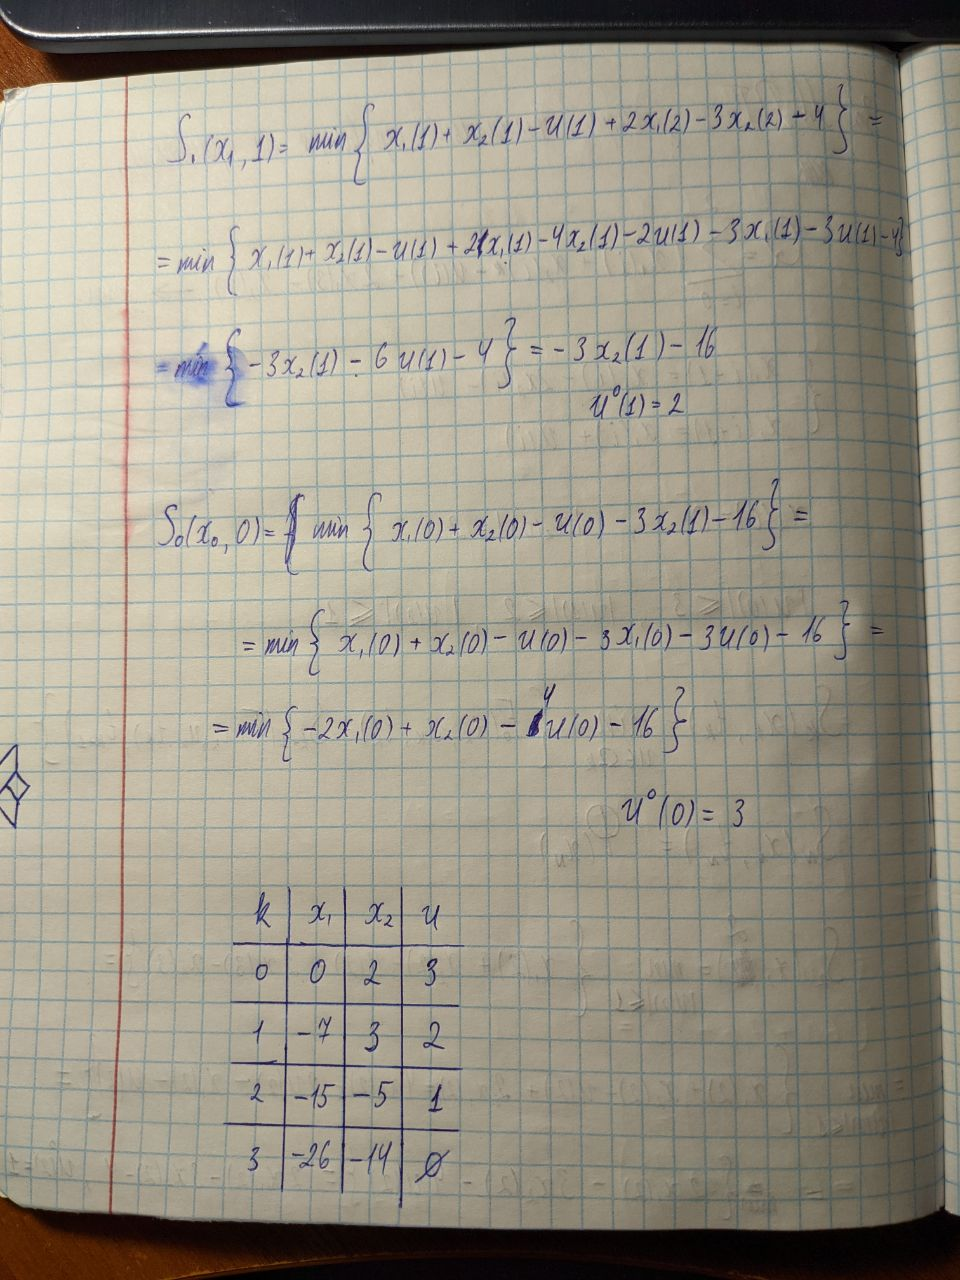 S₁(x₁, 1) = min { x₁(1) + x₂(1) - u(1) + 2x₁(2) - 3x₂(2) + 4 } =
= min { x₁(1) + x₂(1) - u(1) + 2x₁(1) - 4x₂(1) - 2u(1) - 3x₁(1) - 3u(1) - 4 }
= min { -3x₂(1) - 6u(1) - 4 } = -3x₂(1) - 16
u⁰(1) = 2
S₀(x₀, 0) = min { x₁(0) + x₂(0) - u(0) - 3x₂(1) - 16 } =
= min { x₁(0) + x₂(0) - u(0) - 3x₁(0) - 3u(0) - 16 } =
= min { -2x₁(0) + x₂(0) - 4u(0) - 16 }
u⁰(0) = 3
k x₁ x₂ u
0 0 2 3
1 -7 3 2
2 -15 -5 1
3 -26 -14 ∅